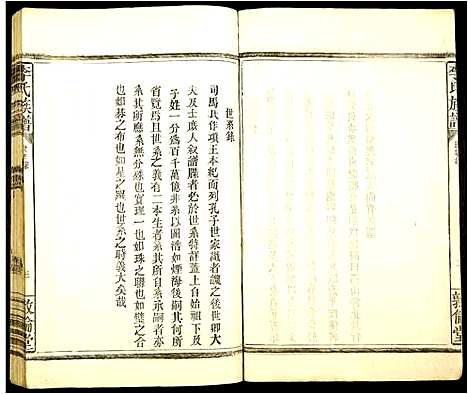 李氏族譜
敦倫堂
世系錄
司馬氏作項王本紀而列孔子世家識者譏之後世卿大
夫及士庶人叙譜牒者必於世系特詳蓋上自始祖下及
子姓一分爲百千萬億非系以圖活如煙海後嗣其何所
省覽焉且世系之義有二本生者系其所自系承嗣者亦
系其所應系無分殊也實理一也如珠之聯也如璧之合
也如綦之布也如繩之引世系之時義大矣哉
李氏族譜
敦倫堂